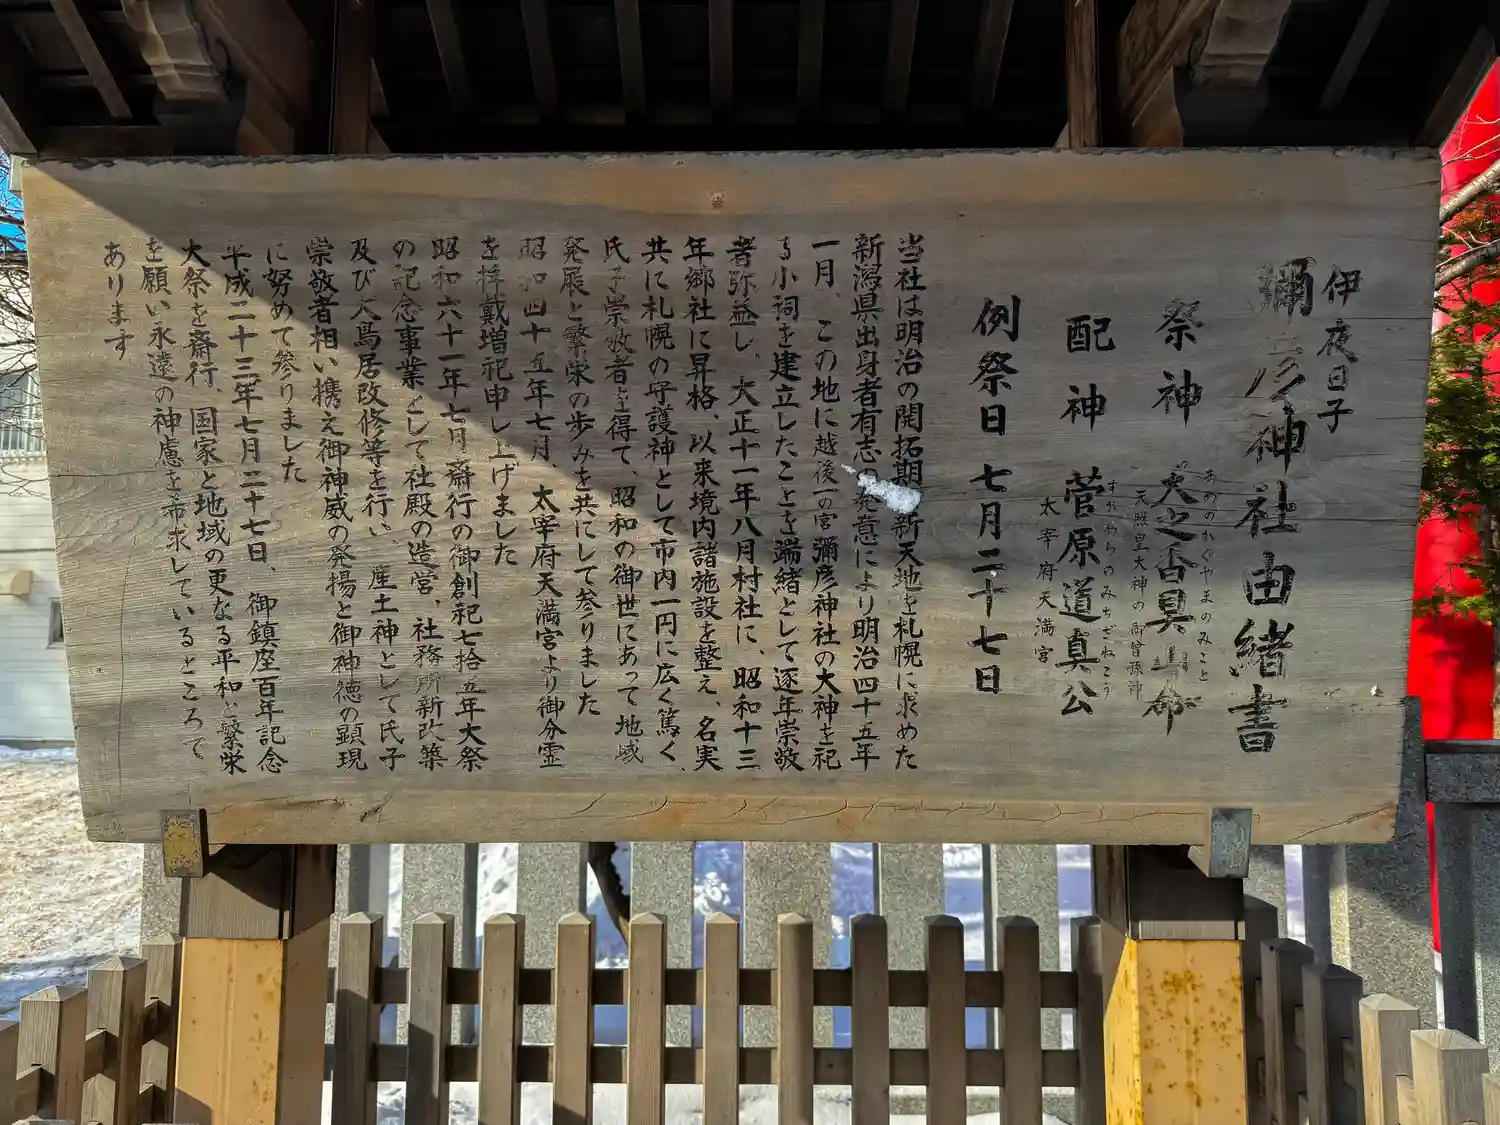 伊夜日子
彌彦神社由緒書
祭神 天之香具山命
あめのかぐやまのみこと
天照皇大神の御曽孫神
配神 菅原道真公
すがわらのみちざねこう
太宰府天満宮
例祭日 七月二十七日
当社は明治の開拓期、新天地を札幌に求めた
新潟県出身者有志の発意により明治四十五年
一月、この地に越後一の宮彌彦神社の大神を祀
る小祠を建立したことを端緒として逐年崇敬
者弥益し、大正十一年八月村社に、昭和十三
年郷社に昇格、以来境内諸施設を整え、名実
共に札幌の守護神として市内一円に広く篤く、
氏子崇敬者を得て、昭和の御世にあって地域
発展と繁栄の歩みを共にして参りました
昭和四十五年七月、太宰府天満宮より御分霊
を捧戴増祀申し上げました
昭和六十一年七月斎行の御創祀七拾五年大祭
の記念事業として社殿の造営、社務所新改築
及び大鳥居改修等を行い、産土神として氏子
崇敬者相い携え御神威の発揚と御神徳の顕現
に努めて参りました
平成二十三年七月二十七日、御鎮座百年記念
大祭を斎行、国家と地域の更なる平和と繁栄
を願い永遠の神慮を希求しているところで
あります